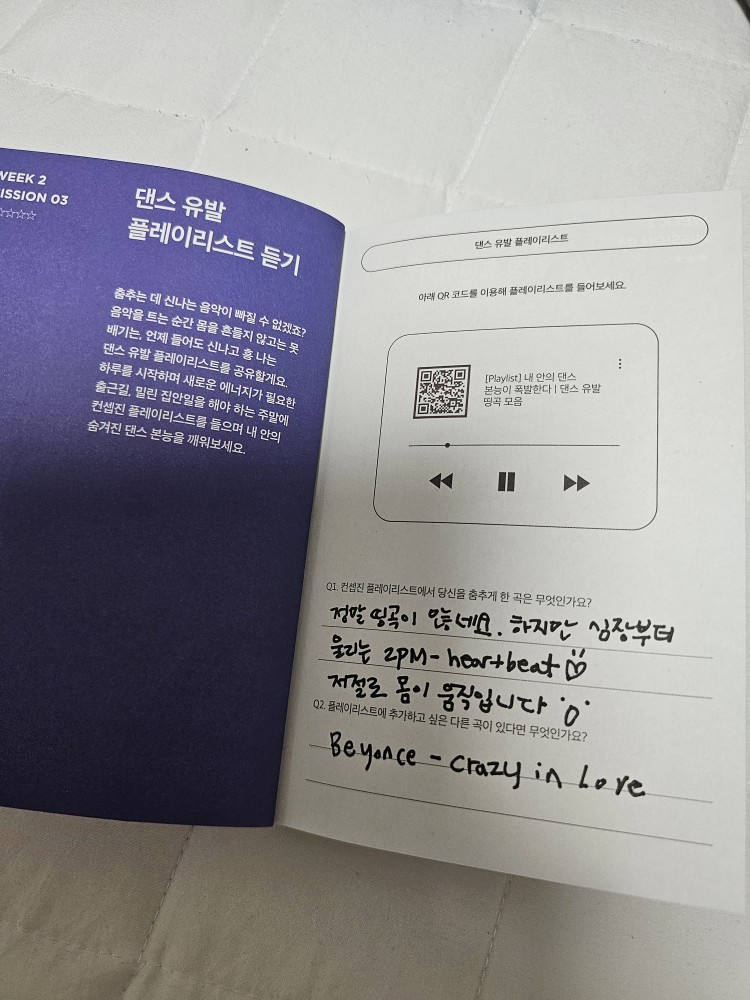 WEEK 2
ISSION 03
☆☆☆☆
댄스 유발
플레이리스트 듣기
춤추는 데 신나는 음악이 빠질 수 없겠죠?
음악을 트는 순간 몸을 흔들지 않고는 못
배기는, 언제 들어도 신나고 흥 나는
댄스 유발 플레이리스트를 공유할게요.
하루를 시작하며 새로운 에너지가 필요한
출근길, 밀린 집안일을 해야 하는 주말에
컨셉진 플레이리스트를 들으며 내 안의
숨겨진 댄스 본능을 깨워보세요.
댄스 유발 플레이리스트
아래 QR 코드를 이용해 플레이리스트를 들어보세요.
[Playlist] 내 안의 댄스
본능이 폭발한다 | 댄스 유발
띵곡 모음
Q1. 컨셉진 플레이리스트에서 당신을 춤추게 한 곡은 무엇인가요?
정말 띵곡이 많네요. 하지만 심장부터
울리는 2PM - heartbeat
저절로 몸이 움직입니다
Q2. 플레이리스트에 추가하고 싶은 다른 곡이 있다면 무엇인가요?
Beyonce - crazy in Love